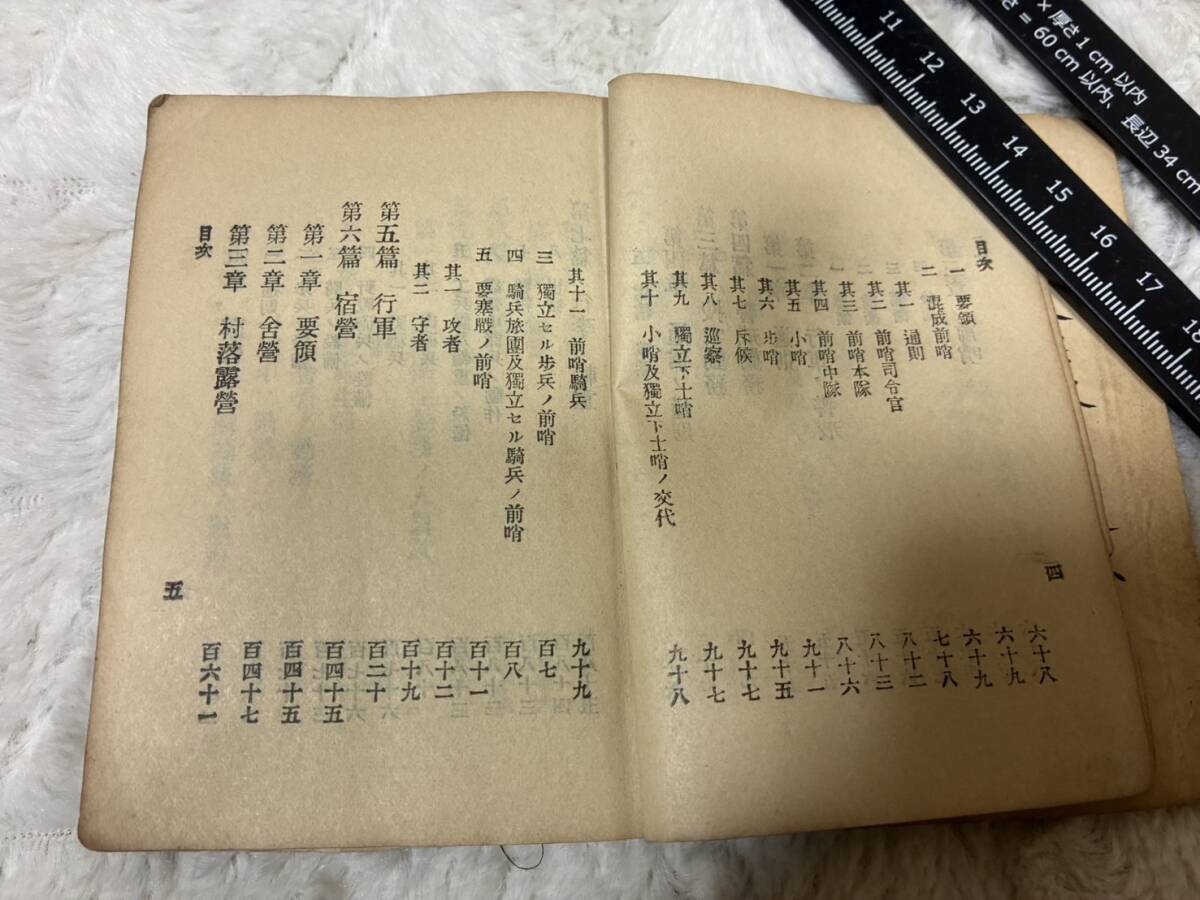 目次
一 要領 六十八
二 混成前哨 六十九
其一 通則 六十九
其二 前哨司令官 七十八
其三 前哨本隊 八十二
其四 前哨中隊 八十三
其五 小哨 八十六
其六 步哨 九十一
其七 斥候 九十五
其八 巡察 九十七
其九 獨立下士哨 九十七
其十 小哨及獨立下士哨ノ交代 九十八
四
其十一 前哨騎兵 九十九
三 獨立セル步兵ノ前哨 百七
四 騎兵旅團及獨立セル騎兵ノ前哨 百八
五 要塞戰ノ前哨 百十一
其一 攻者 百十二
其二 守者 百十九
第五篇 行軍 百二十
第六篇 宿營 百四十五
第一章 要領 百四十五
第二章 舍營 百四十七
第三章 村落露營 百六十一
目次
五
11 12 13 14 15 16 17 18
× 厚さ 1 cm 以内
さ = 60 cm 以内、長辺 34 cm